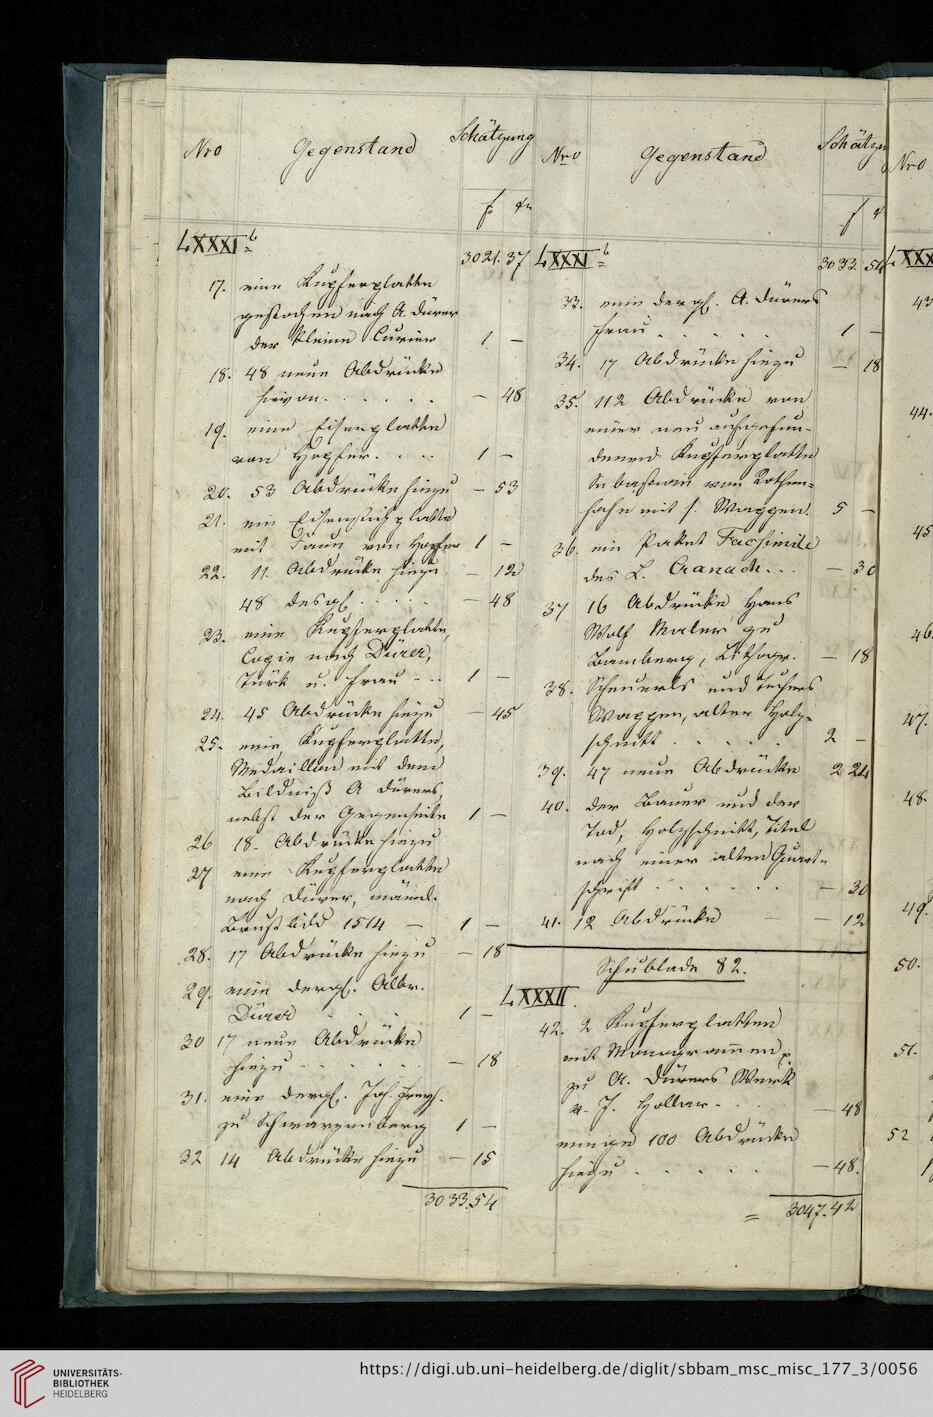 Nro Gegenstand Schätzung
f xr
LXXXI b
3021. 37
17. eine Kupferplatte
gestochen nach A. Dürer
der kleine Curier 1 —
18. 48 neue Abdrücke
hievon . . . . . — 48
19. eine Eisenplatte
von Hopfer . . . 1 —
20. 53 Abdrücke hiezu — 53
21. ein Eisenstichplatte
mit Faun von Hopfer 1 —
22. 11. Abdrücke hiezu — 12
48 desgl. . . . . — 48
23. eine Kupferplatte,
Copie nach Dürer,
Türk u. Frau . . . 1 —
24. 45 Abdrücke hiezu — 45
25. eine Kupferplatte,
Medaillon mit dem
Bildniß A Dürers,
nebst der Gegenseite 1 —
26 18. Abdrücke hiezu
27 eine Kupferplatte
nach Dürer, männl.
Brustbild 1514 — 1 —
28. 17 Abdrücke hiezu — 18
29. eine dergl. Albr.
Dürer . . . 1 —
30 17 neue Abdrücke
hiezu . . . . . — 18
31. eine dergl. Joh. Freyh.
zu Schwarzenberg 1 —
32 14 Abdrücke hiezu — 15
3033.54
Nro Gegenstand Schätzu
f x
LXXXI b
3033. 54
33. eine dergl. A. Dürers
Frau . . . . . 1 —
34. 17 Abdrücke hiezu — 18
35. 112 Abdrücke von
einer neu aufgefun-
denen Kupferplatte
Sebastian von Rothen-
hahn mit s. Wappen. 5 —
36. ein Paket Facsimile
des L. Cranach . . . — 30
37 16 Abdrücke Hans
Wolf Maler zu
Bamberg, Lithogr. — 18
38. Scheuerls und Tuchers
Wappen, alter Holz-
schnitt . . . . . 2 —
39. 47 neue Abdrücke 2 24
40. der Bauer und der
Tod, Holzschnitt, Titel
nach einer alten Quart-
schrift . . . . . — 30
41. 12 Abdrücke — — 12
Schublade 82.
LXXXII.
42. 2 Kupferplatten
mit Monogrammen,
zu A. Dürers Werk
v. J. Hollar . . . — 48
100 Abdrücke
hiezu . . . . . — 48.
= 3047.42
Nro
LXXX
43
44.
45
46.
47.
48.
49.
50.
51.
52
UNIVERSITÄTS-
BIBLIOTHEK
HEIDELBERG
https://digi.ub.uni-heidelberg.de/diglit/sbbam_msc_misc_177_3/0056